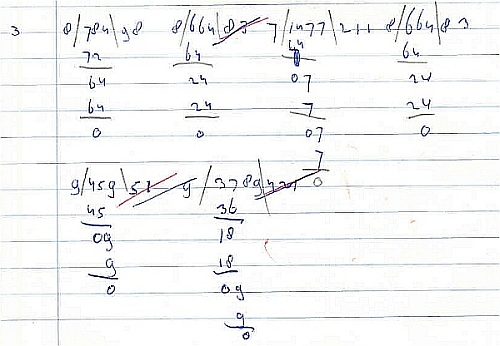 3 8/784\98 8/664\83 7/1477\211 8/664\83
72 64 14 64
64 24 07 24
64 24 7 24
0 0 07 0
7
9/459\51 9/3789\421 0
45 36
09 18
9 18
0 09
9
0